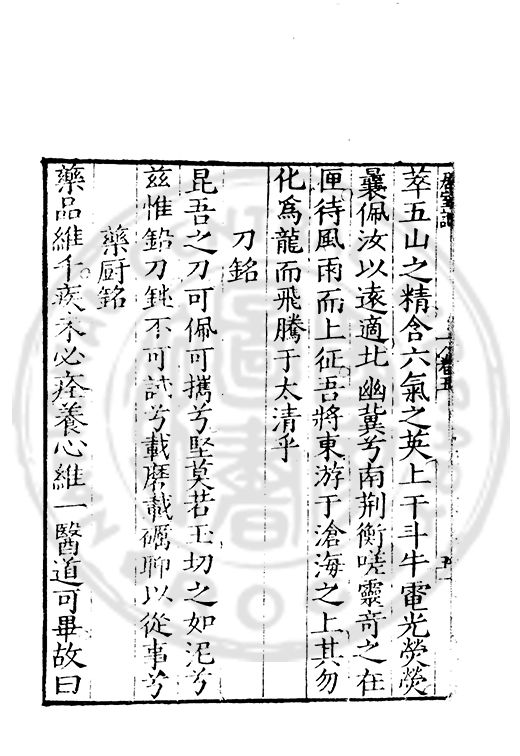 卷五
萃五山之精含六氣之英上干斗牛電光熒熒
曩佩汝以遠適北幽冀兮南荆衡嗟靈奇之在
匣待風雨而上征吾將東游于滄海之上其勿
化爲龍而飛騰于太清乎
刀銘
昆吾之刀可佩可攜兮堅莫若玉切之如泥兮
兹惟鉛刀鈍不可試兮載磨載礪聊以從事兮
藥厨銘
藥品維千疾未必痊養心維一醫道可畢故曰